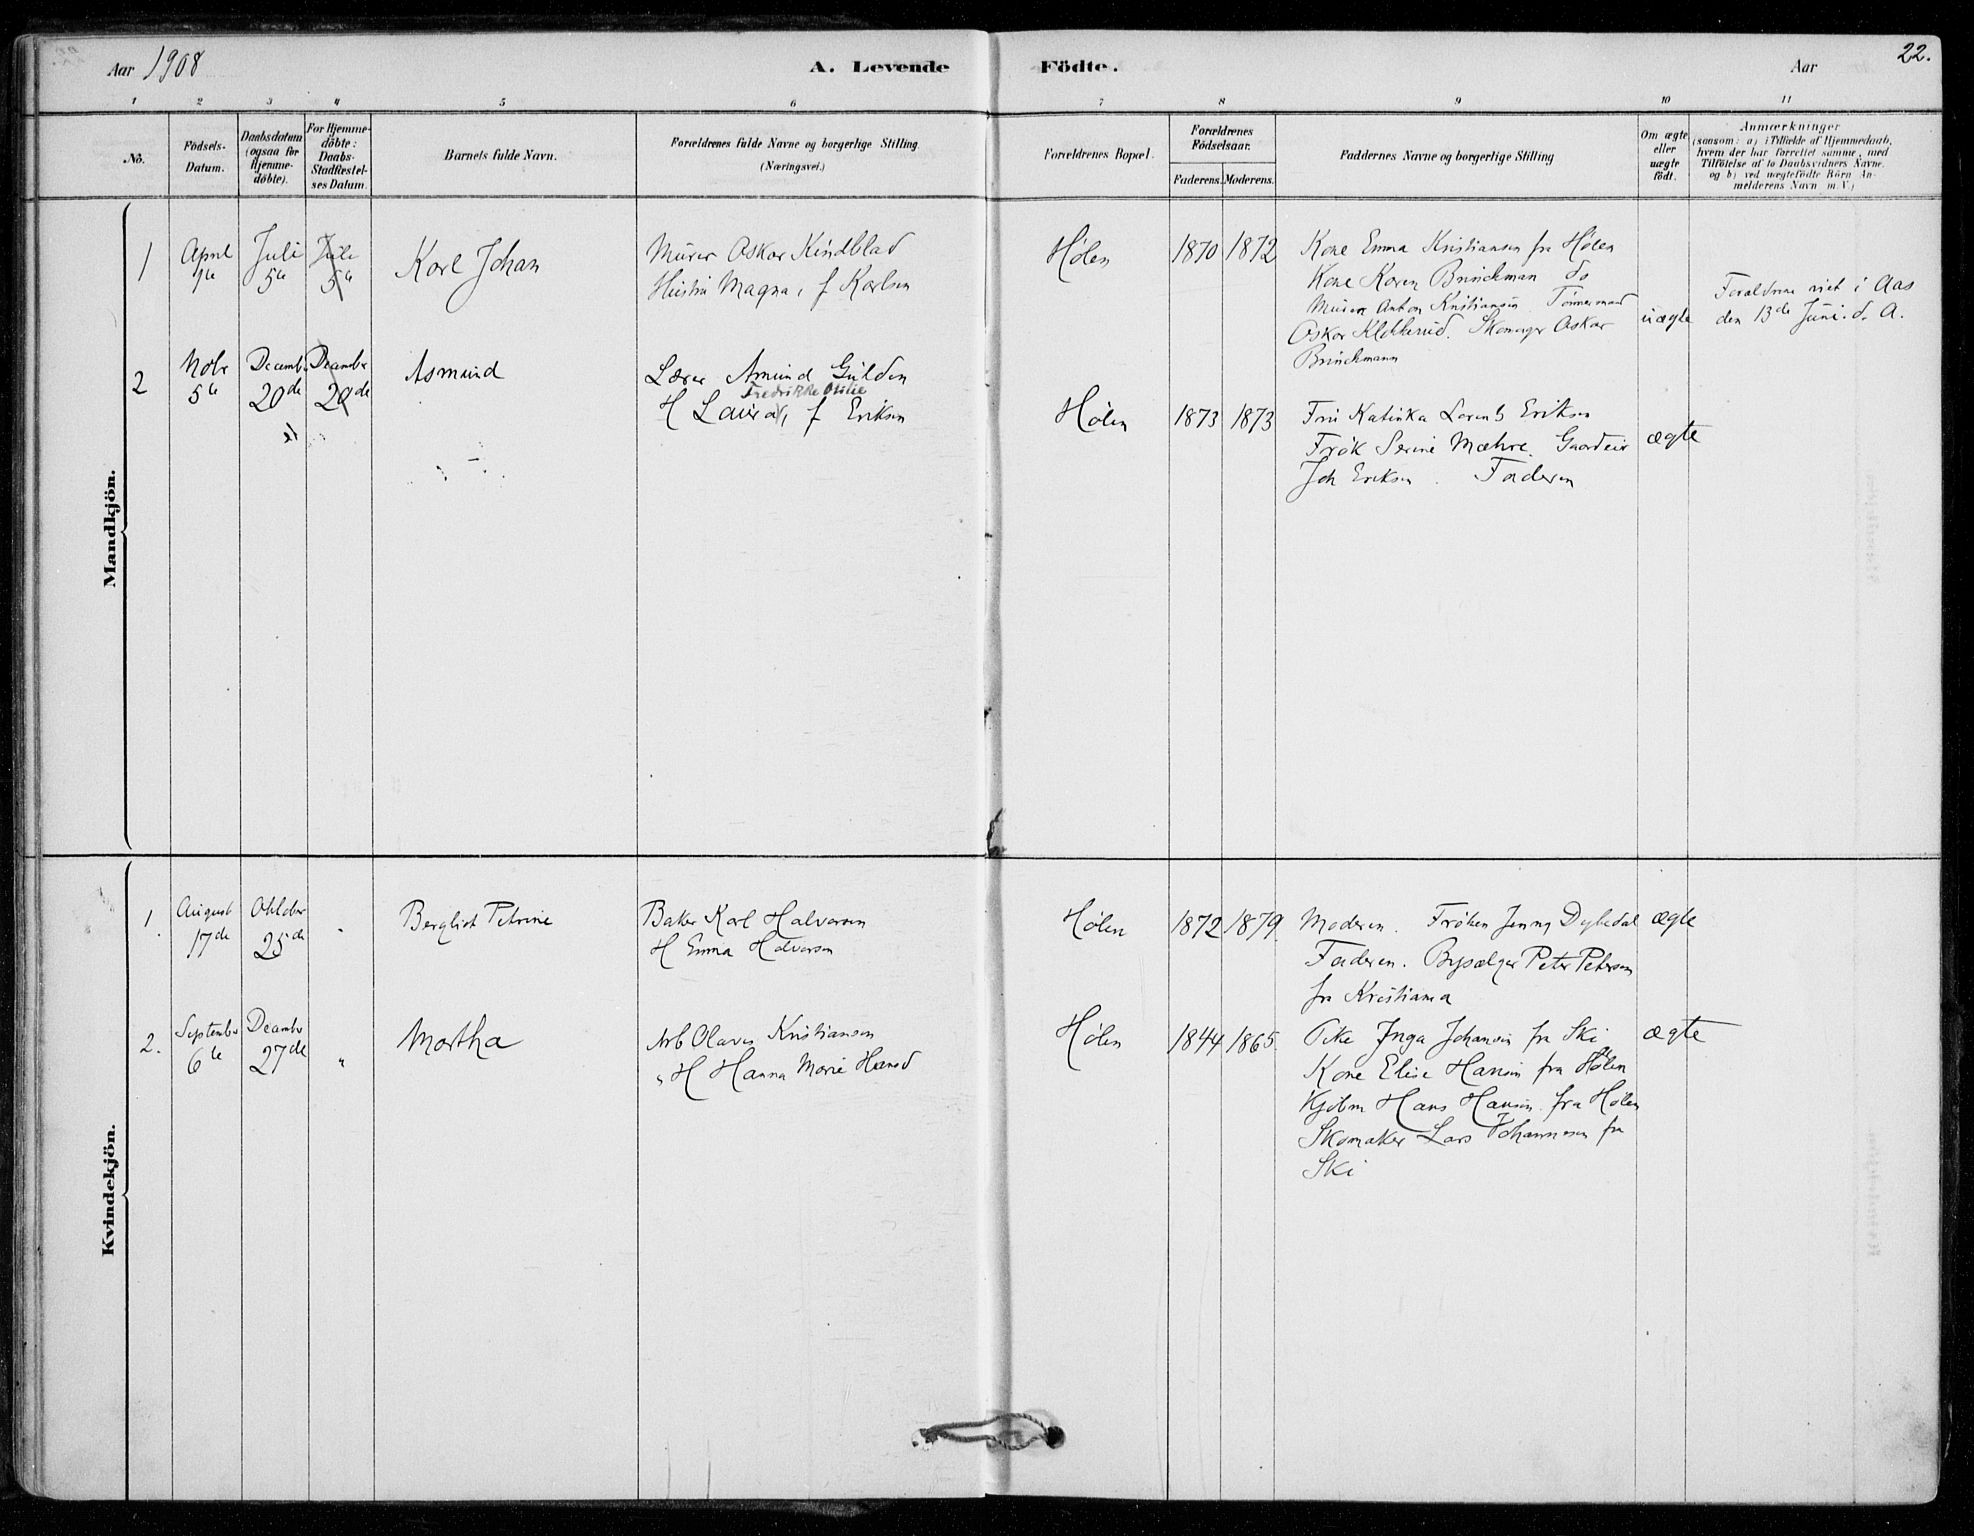 Aar 1908
A. Levende Födte.
Aar
22.
1 2 3 4 5 6 7 8 9 10 11
No.
Födsels-
Datum.
Daabsdatum
(ogsaa for
Hjemme-
döbte).
For Hjemme-
döbte:
Daabs-
Stadfæstel-
ses Datum.
Barnets fulde Navn.
Forældrenes fulde Navne og borgerlige Stilling
(Næringsvei.)
Forældrenes Bopæl.
Forældrenes
Födselsaar.
Faderens. Moderens.
Faddernes Navne og borgerlige Stilling
Om ægte
eller
uægte
födt.
Anmærkninger
(saasom: a) i Tilfælde af Hjemmedaab,
hvem der har forrettet samme, med
Tilföielse af to Daabsvidners Navne.
og b) ved uægtefödte Börn An-
melderens Navn m.V.)
Mandkjön.
1
April
Juli
5te
Juli
5te
Karl Johan
Murer Oskar Kindblad
Hustru Magna, f Karlsen
Hølen
1870 1872
Kone Emma Kristiansen fra Hølen
Kone Karen Brinckman do
Murer Anton Kristiansen Tømermand
Oskar Klokkerud. Skomager Oskar
Brinckmann
uægte
Forældrene viet i Aas
den 13de Juni d. A.
2
Nobr
5te
Decemb
20de
December
20de
Asmund
Lærer Amund Gulden
Fredrikke Otilie
H Laura, f Eriksen
Hølen
1873 1873
Fru Katinka Lorentz Eriksen
Frøk Serine Mæhre. Gaardeier
Joh Eriksen. Faderen
ægte
Kvindekjön.
1.
August
17de
Oktober
25de
Bergliot Petrine
Baker Karl Halvorsen
H Emma Halvorsen
Hølen
1872 1879
Moderen. Frøken Jenny Dybedal
Faderen. Peter Petersen
fra Kristiania
ægte
2.
September
6te
December
27de
"
Martha
Arb Olaves Kristiansen
H Hanna Marie Hansd
Hølen
1844 1865
Pike Inga Johansen fra Ski
Kone Elise Hansen fra Hølen
Kjøbm Hans Hansen fra Hølen
Skomaker Lars Johannesen fra
Ski
ægte